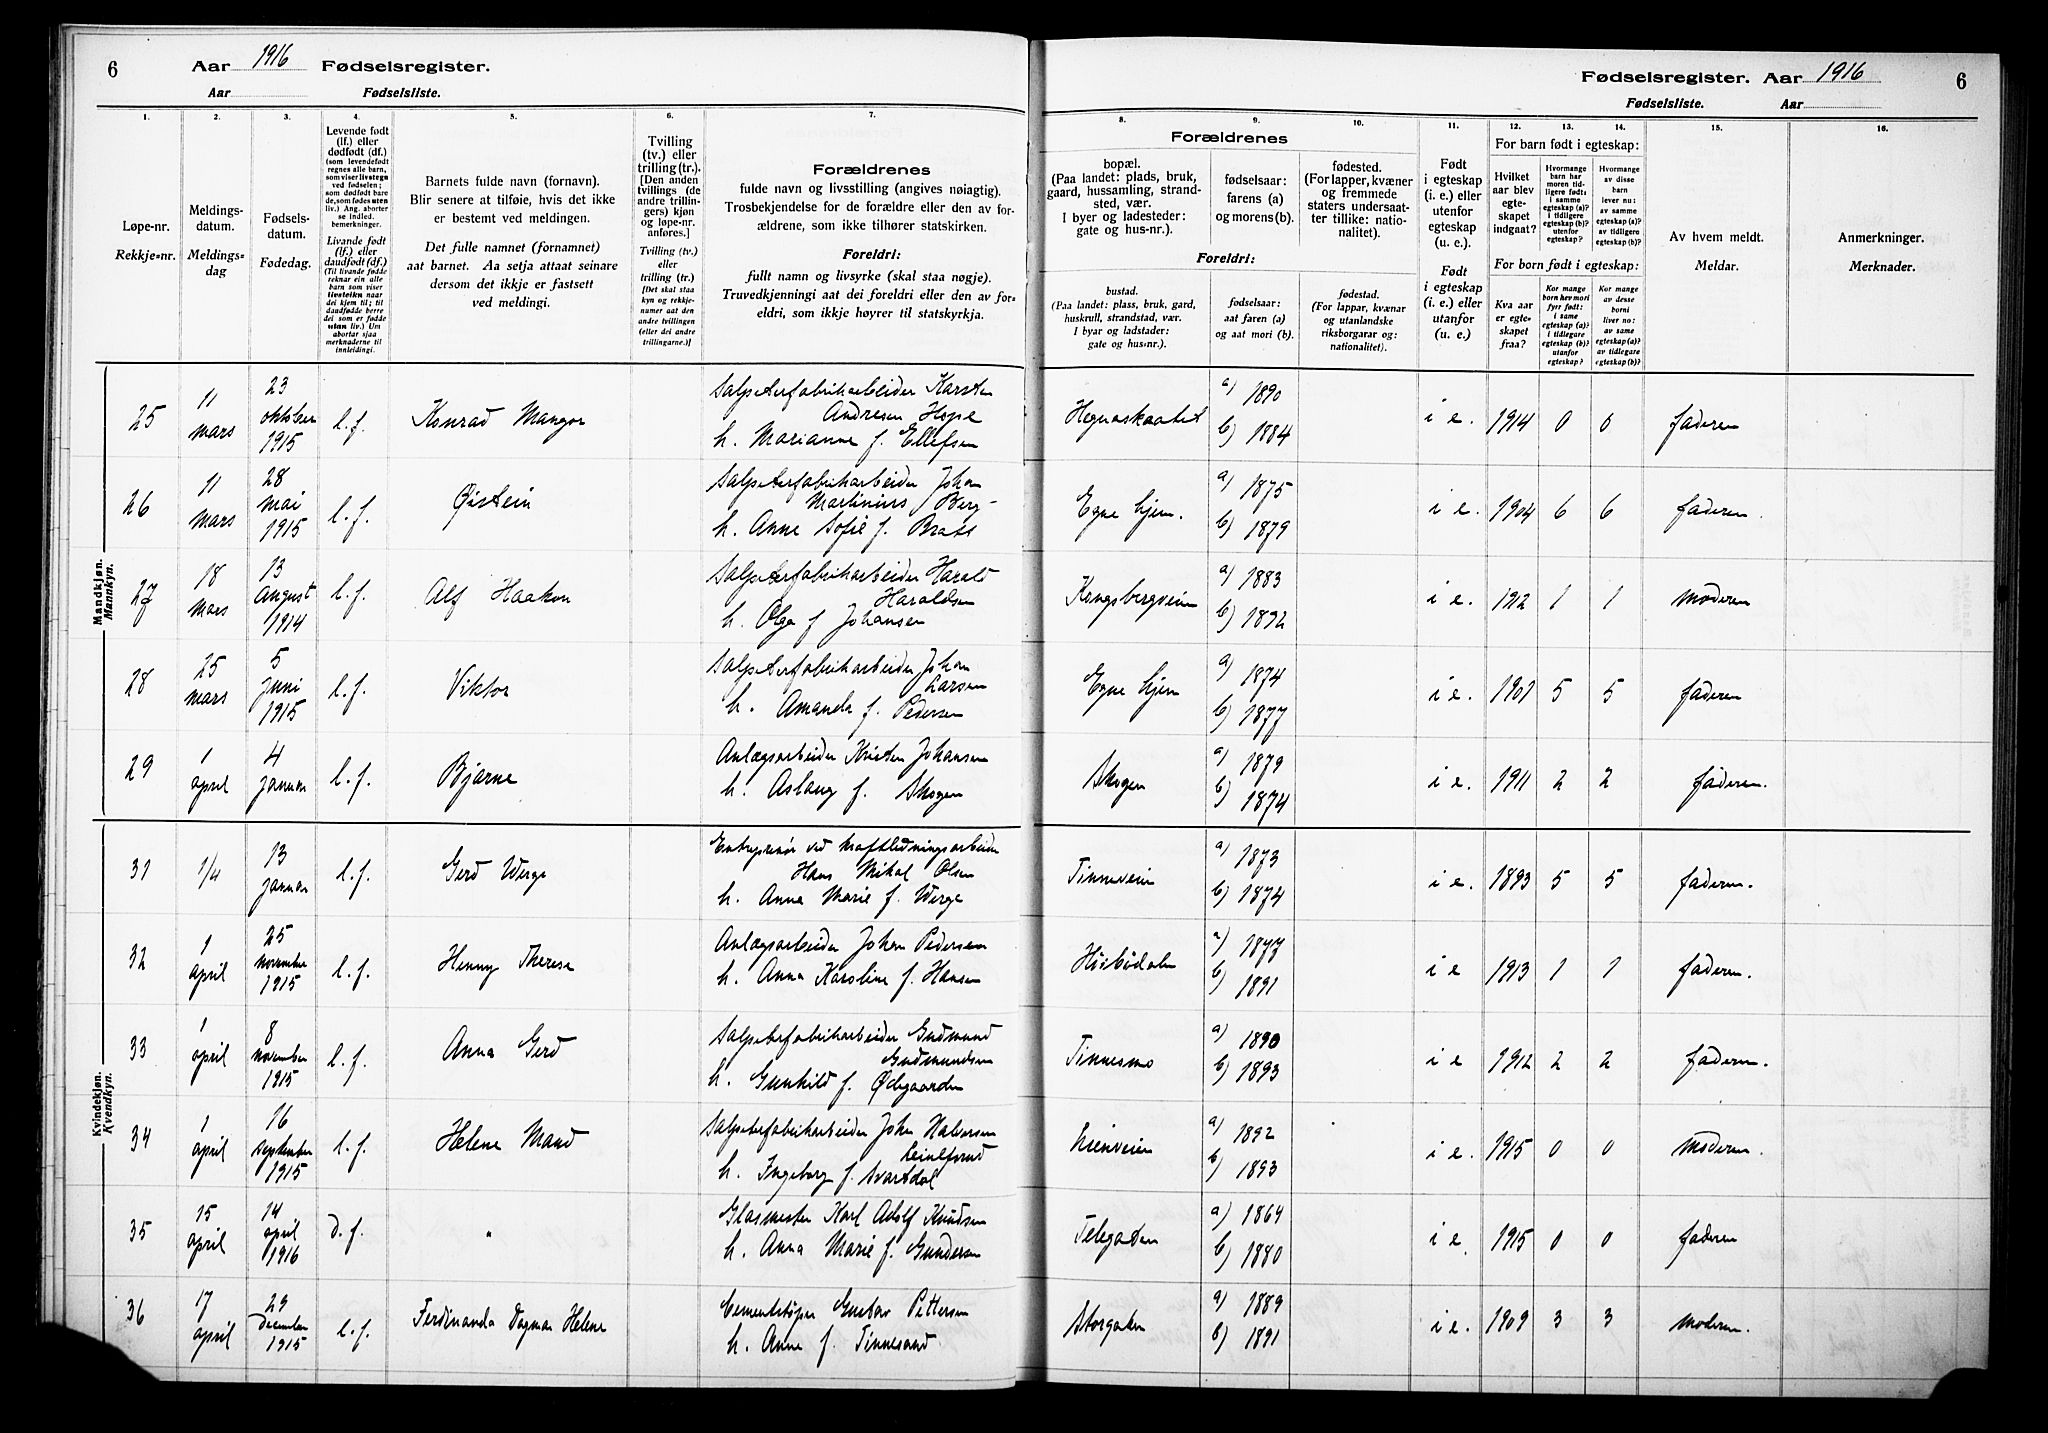 6 Aar 1916 Fødselsregister.
Aar Fødselsliste.
Fødselsregister. Aar 1916 6
Fødselsliste. Aar
1. 2. 3. 4. 5. 6. 7. 8. 9. 10. 11. 12. 13. 14. 15. 16.
Løpe-nr.
Rekkje-nr.
Meldings-
datum.
Meldings-
dag
Fødsels-
datum.
Fødedag.
Levende født
(lf.) eller
dødfødt (df.)
(som levendefødt
regnes alle barn,
som viser livstegn
ved fødselen;
som dødfødt bare
de, som fødes uten
liv.) Ang. aborter
se indled.
bemerkninger.
Livande født
(lf.) eller
daudfødt (df.)
(Til livande fødde
reknar ein alle
born som viser
livsteikn naar
dei kjem til; til
daudfødde berre
dei som er fødde
utan liv.) Um
abortar sjaa
merknaderne til
innleidingi.
Barnets fulde navn (fornavn).
Blir senere at tilføie, hvis det ikke
er bestemt ved meldingen.
Det fulle namnet (fornamnet)
aat barnet. Aa setja attaat seinare
dersom det ikkje er fastsett
ved meldingi.
Tvilling
(tv.) eller
trilling (tr.)
[Den anden
tvillings (de
andre trillin-
gers) kjøn
og løpe-nr.
anføres.]
Tvilling (tv.)
eller
trilling (tr.)
[Det skal staa
kyn og rekkje-
numer aat den
andre tvillingen
(eller dei andre
trillingarne.)]
Forældrenes
fulde navn og livsstilling (angives nøiagtig).
Trosbekjendelse for de forældre eller den av for-
ældrene, som ikke tilhører statskirken.
Foreldri:
fullt namn og livsyrke (skal staa nøgje).
Truvedkjenningi aat dei foreldri eller den av for-
eldri, som ikkje høyrer til statskyrkja.
Forældrenes
bopæl.
(Paa landet: plads, bruk,
gaard, hussamling, strand-
sted, vær.
I byer og ladesteder:
gate og hus-nr.).
fødselsaar:
farens (a)
og morens (b).
fødested.
(For lapper, kvæner
og fremmede
staters undersaat-
ter tillike: natio-
nalitet).
Foreldri:
bustad.
(Paa landet: plass, bruk, gard,
huskrull, strandstad, vær.
I byar og ladstader:
gate og hus-nr.).
fødselsaar:
aat faren (a)
og aat mori (b).
fødestad.
(For lappar, kvænar
og utanlandske
riksborgarar og:
nationalitet).
Født
i egteskap
(i. e.) eller
utenfor
egteskap
(u. e.).
Født
i egteskap
(i. e.) eller
utanfor
(u. e.)
For barn født i egteskap:
Hvilket
aar blev
egte-
skapet
indgaat?
Hvormange
barn har
moren tid-
ligere født:
i samme
egteskap (a)?
i tidligere
egteskap (b)?
utenfor
egteskap?
Hvormange
av disse
barn
lever nu:
av samme
egteskap (a)?
av tidligere
egteskap (b)?
For born født i egteskap:
Kva aar
er egte-
skapet
fraa?
Kor mange
born hev mori
fyrr født:
i same
egteskap (a)?
i tidlegare
egteskap (b)?
utanfor
egteskap?
Kor mange
av desse
borni
liver no:
av same
egteskap (a)?
av tidlegare
egteskap (b)?
Av hvem meldt.
Meldar.
Anmerkninger.
Merknader.
Mandkjøn.
Mannkyn.
25 11 mars 23 oktober 1915 l.f. Konrad Mangor Salpeterfabrikarbeider Karsten
Andresen Hope
h. Marianne f. Ellefsen a) 1890 b) 1884 i e. 1914 0 0 faderen
26 11 mars 28 mai 1915 l.f. Øistein Salpeterfabrikarbeider Johan
Martinius Berg
h. Anne Sofie f. Egne hjem. a) 1875 b) 1879 i e. 1904 6 6 faderen.
27 18 mars 13 august 1914 l.f. Alf Haakon Salpeterfabrikarbeider Harald
Haraldsen
h. Olga f Johansen Kongsbergveien a) 1883 b) 1892 i e. 1912 1 1 moderen
28 25 mars 5 juni 1915 l.f. Viktor Salpeterfabrikarbeider Johan
Larsen
h. Amanda f. Pedersen Egne hjem a) 1874 b) 1877 i e. 1901 5 5 faderen
29 1 april 4 januar l.f. Bjarne Anlægsarbeider Kristen Johansen
h. Aslaug f. Skogen Skogen a) 1879 b) 1874 i e. 1911 2 2 faderen.
Kvindekjøn.
Kvendkyn.
31 1/4 13 januar l.f. Gerd Werge Entreprenør ved kraftledningsarbeider
Hans Mikal Olsen
h. Anna Marie f. Werge Tinneveien a) 1873 b) 1874 i e. 1893 5 5 faderen.
32 1 april 25 november 1915 l.f. Henny Therese Anlægsarbeider Johan Pedersen
h. Anna Karoline f. Hansen a) 1877 b) 1891 i e 1913 1 1 faderen.
33 1 april 8 november 1915 l.f. Anna Gerd Salpeterfabrikarbeider Gudmund
Gudmundsen
h. Gunhild f. Ødegaarden Tinnesmo a) 1890 b) 1893 i e 1912 2 2 faderen.
34 1 april 16 september 1915 l.f. Helene Maud Salpeterfabrikarbeider John Halvorsen
h. Ingeborg f. Svartdal Lienveien a) 1892 b) 1893 i e. 1915 0 0 moderen.
35 15 april 14 april 1916 d.f. " Glasmester Karl Adolf Knudsen
h. Anna Marie f. Gundersen Telegaten a) 1864 b) 1880 i e. 1915 0 0 faderen
36 17 april 29 december 1915 l.f. Ferdinanda Dagmar Helene Cementstøper Gustav Pettersen
h. Anne f. Tinnesand Storgaten a) 1889 b) 1891 i e. 1909 3 3 moderen.